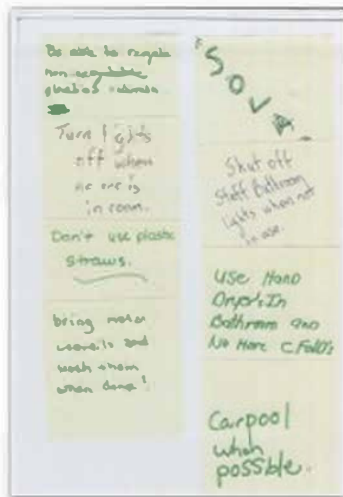 Be able to recycle
non recyclable
plastics
Turn lights
off when
no one is
in room.
Don't use plastic
straws.
bring metal
and
wash them
when done!
SOVA
Shut off
Staff Bathroom
Lights when not
in use.
USE HAND
In
Bathroom and
No More C Fold's
Carpool
when
possble.